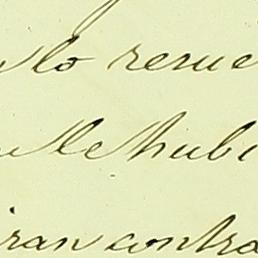 lo resue
le hubi
iran contra